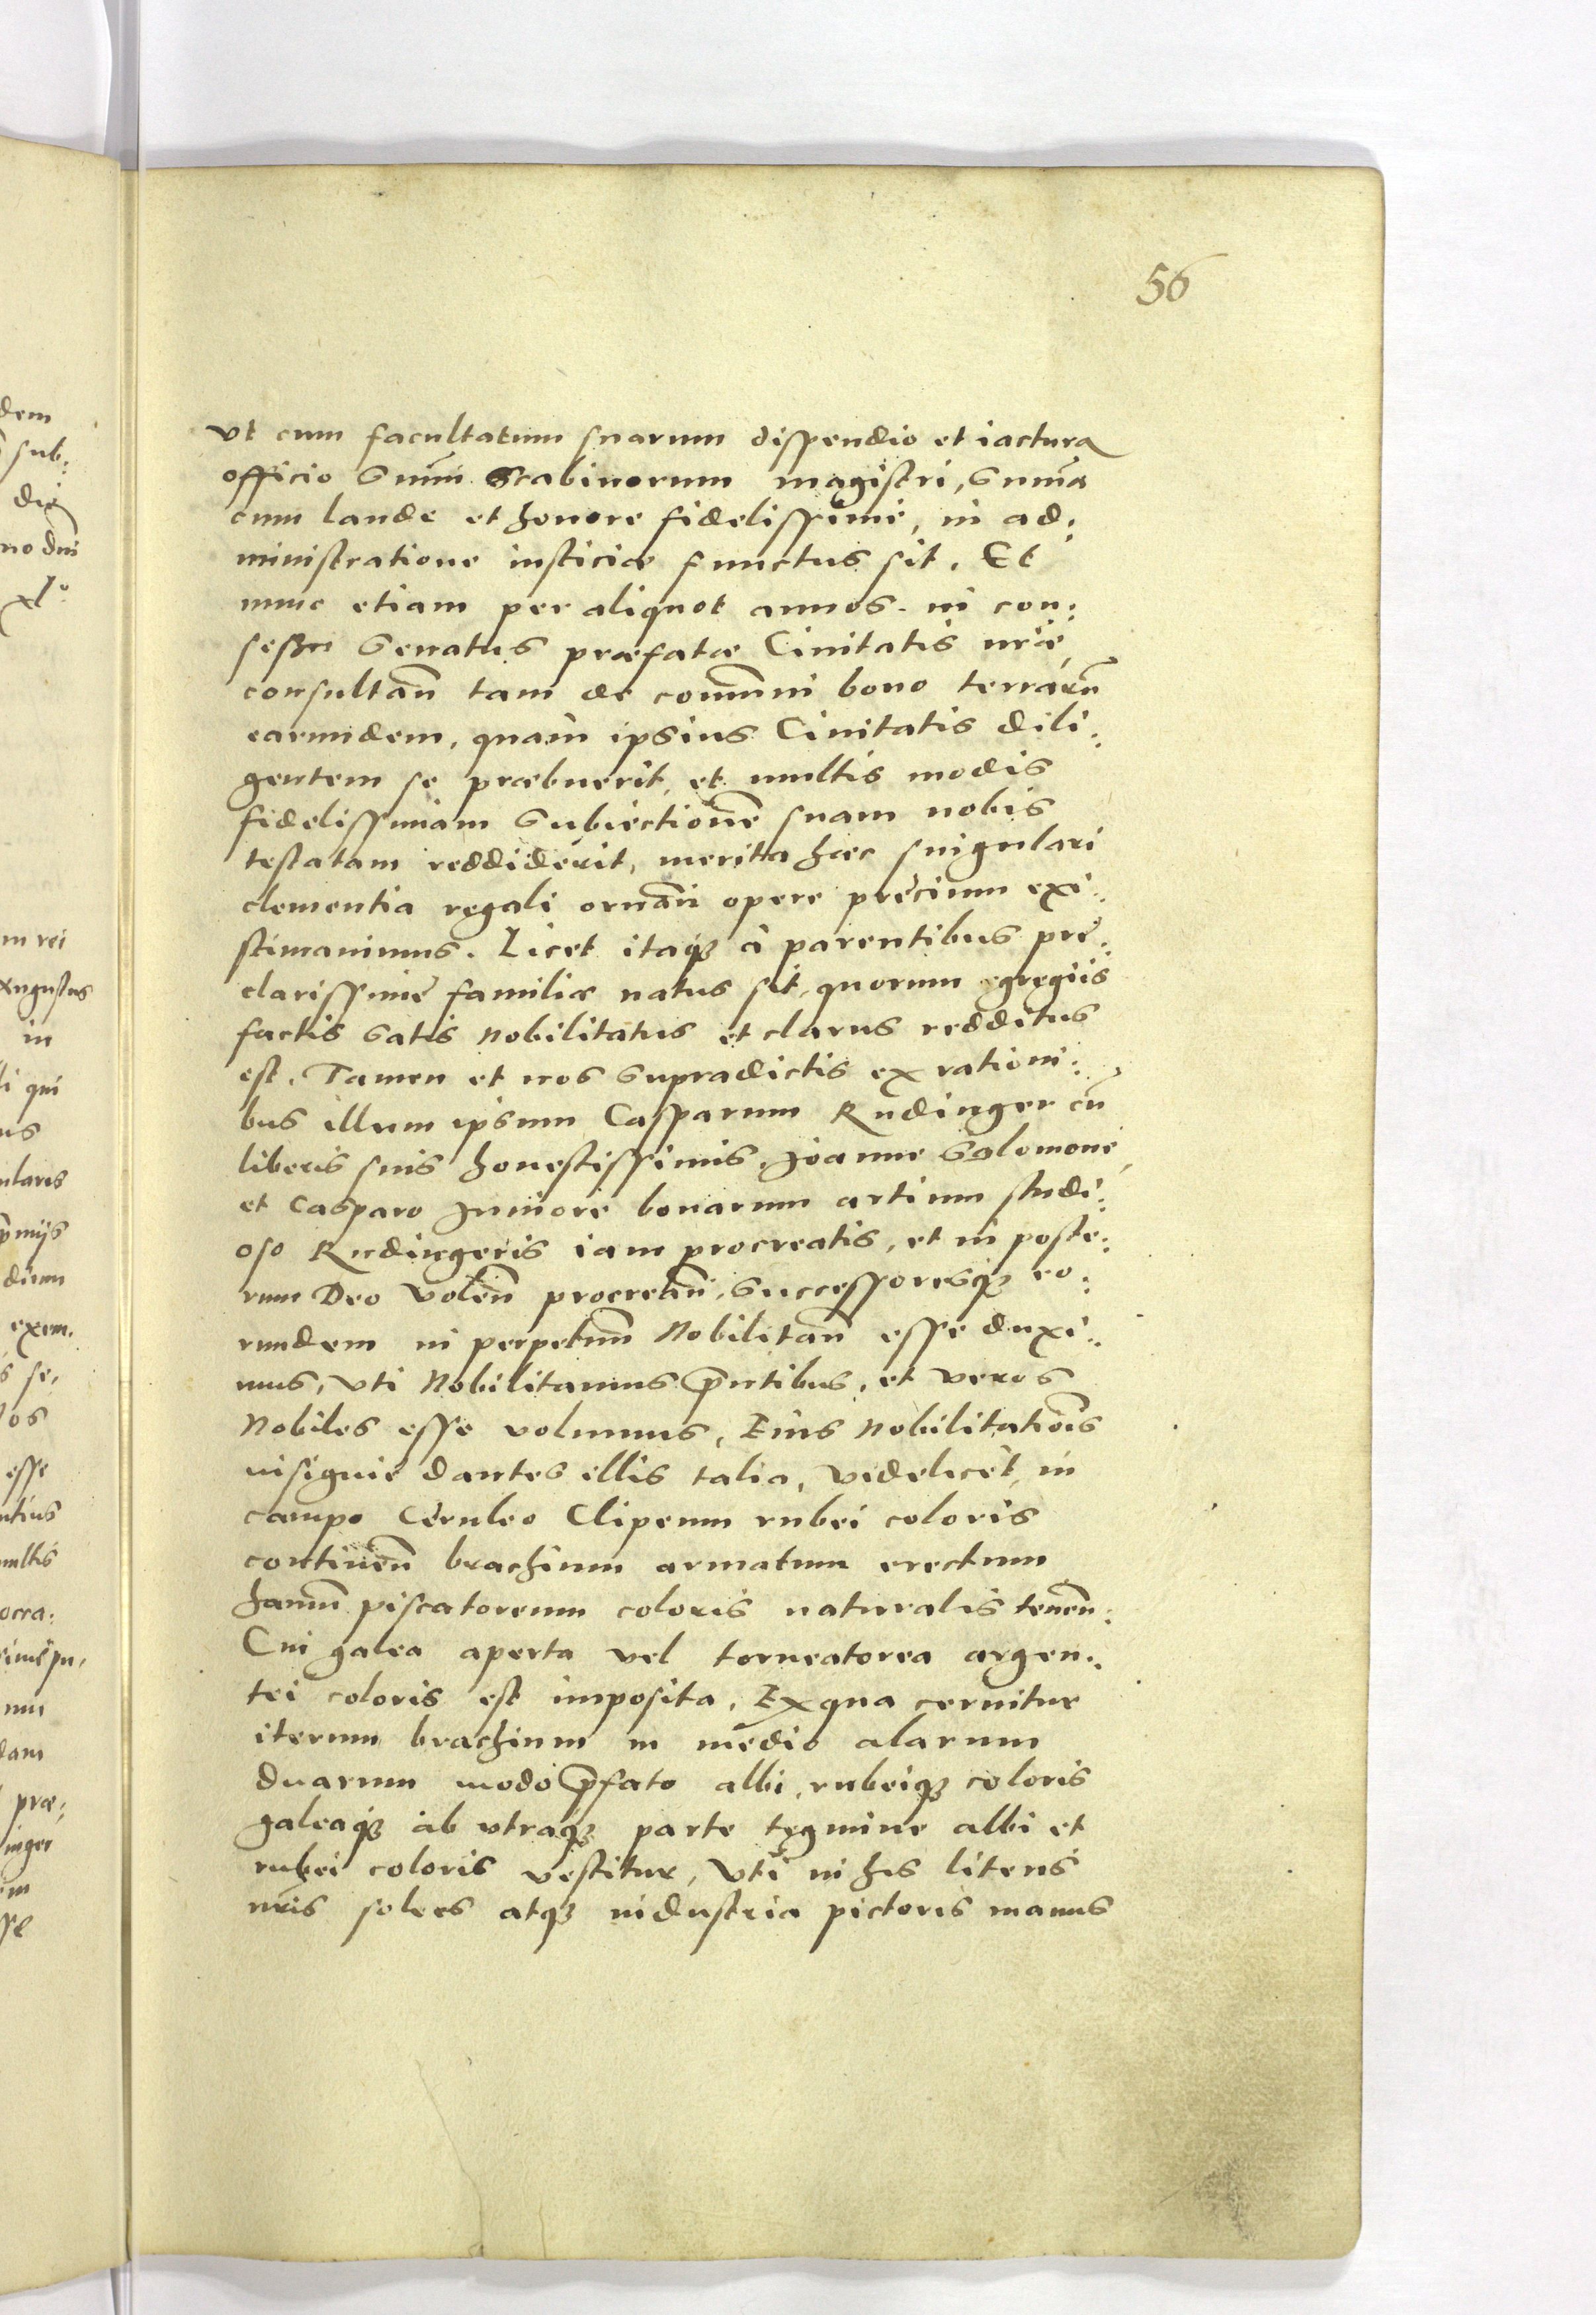 56
vt cum facultatum suarum dispendio et iactura
officio sum̃i Scabinorum magistri, sum̃a
cum laude et honore fidelissime, in ad:
ministratione iusticiæ functus sit. Et
nunc etiam per aliquot annos in con:
sessu Senatus præfatæ Ciuitatis nr̃æ,
consultan̄ tam de com̃uni bono terrarū
earundem, quam ipsius Ciuitatis dili:
gentem se præbuerit, et multis modis
fidelissimam subiectionē suam nobis
testatam reddiderit, merita hæc singulari
clementia regali ornāri opere precium exi:
stimauimus. Licet itaq₃ à parentibus pre:
clarissime familiæ natus sit, quorum egregiis
factis satis Nobilitatus et clarus redditus
est. Tamen et nos supradictis ex rationi:
bus illum ipsum Casparum Rudinger cū
liberis suis honestissimis, Joanne Salomone,
et Casparo Juniore bonarum artium studi:
oso Rudingeris iam procreatis, et in poste:
rum Deo volen̄ procrean̄, Successoresq₃ eo:
rundem in perpetuū Nobilitan̄ esse duxi:
mus, vti Nobilitamus p̄ntibus, et veros
Nobiles esse volumus, Eius Nobilitatiōis
insignie dantes illis talia, videlicet, in
campo Ceruleo Clipeum rubei coloris
continen̄ brachium armatum erectum
hamū piscatoreum coloris naturalis tenen̄:
Cui galea aperta vel torneatorea argen:
tei coloris est imposita, Ex qua cernitur
iterum brachium in medio alarum
duarum modo p̄fato albi, rubeiq₃ coloris
galeaq₃ ab vtraq₃ parte tegmine albi et
rubei coloris vestitur, Vti in his literis
nr̃is solers atq₃ industria pictoris manus